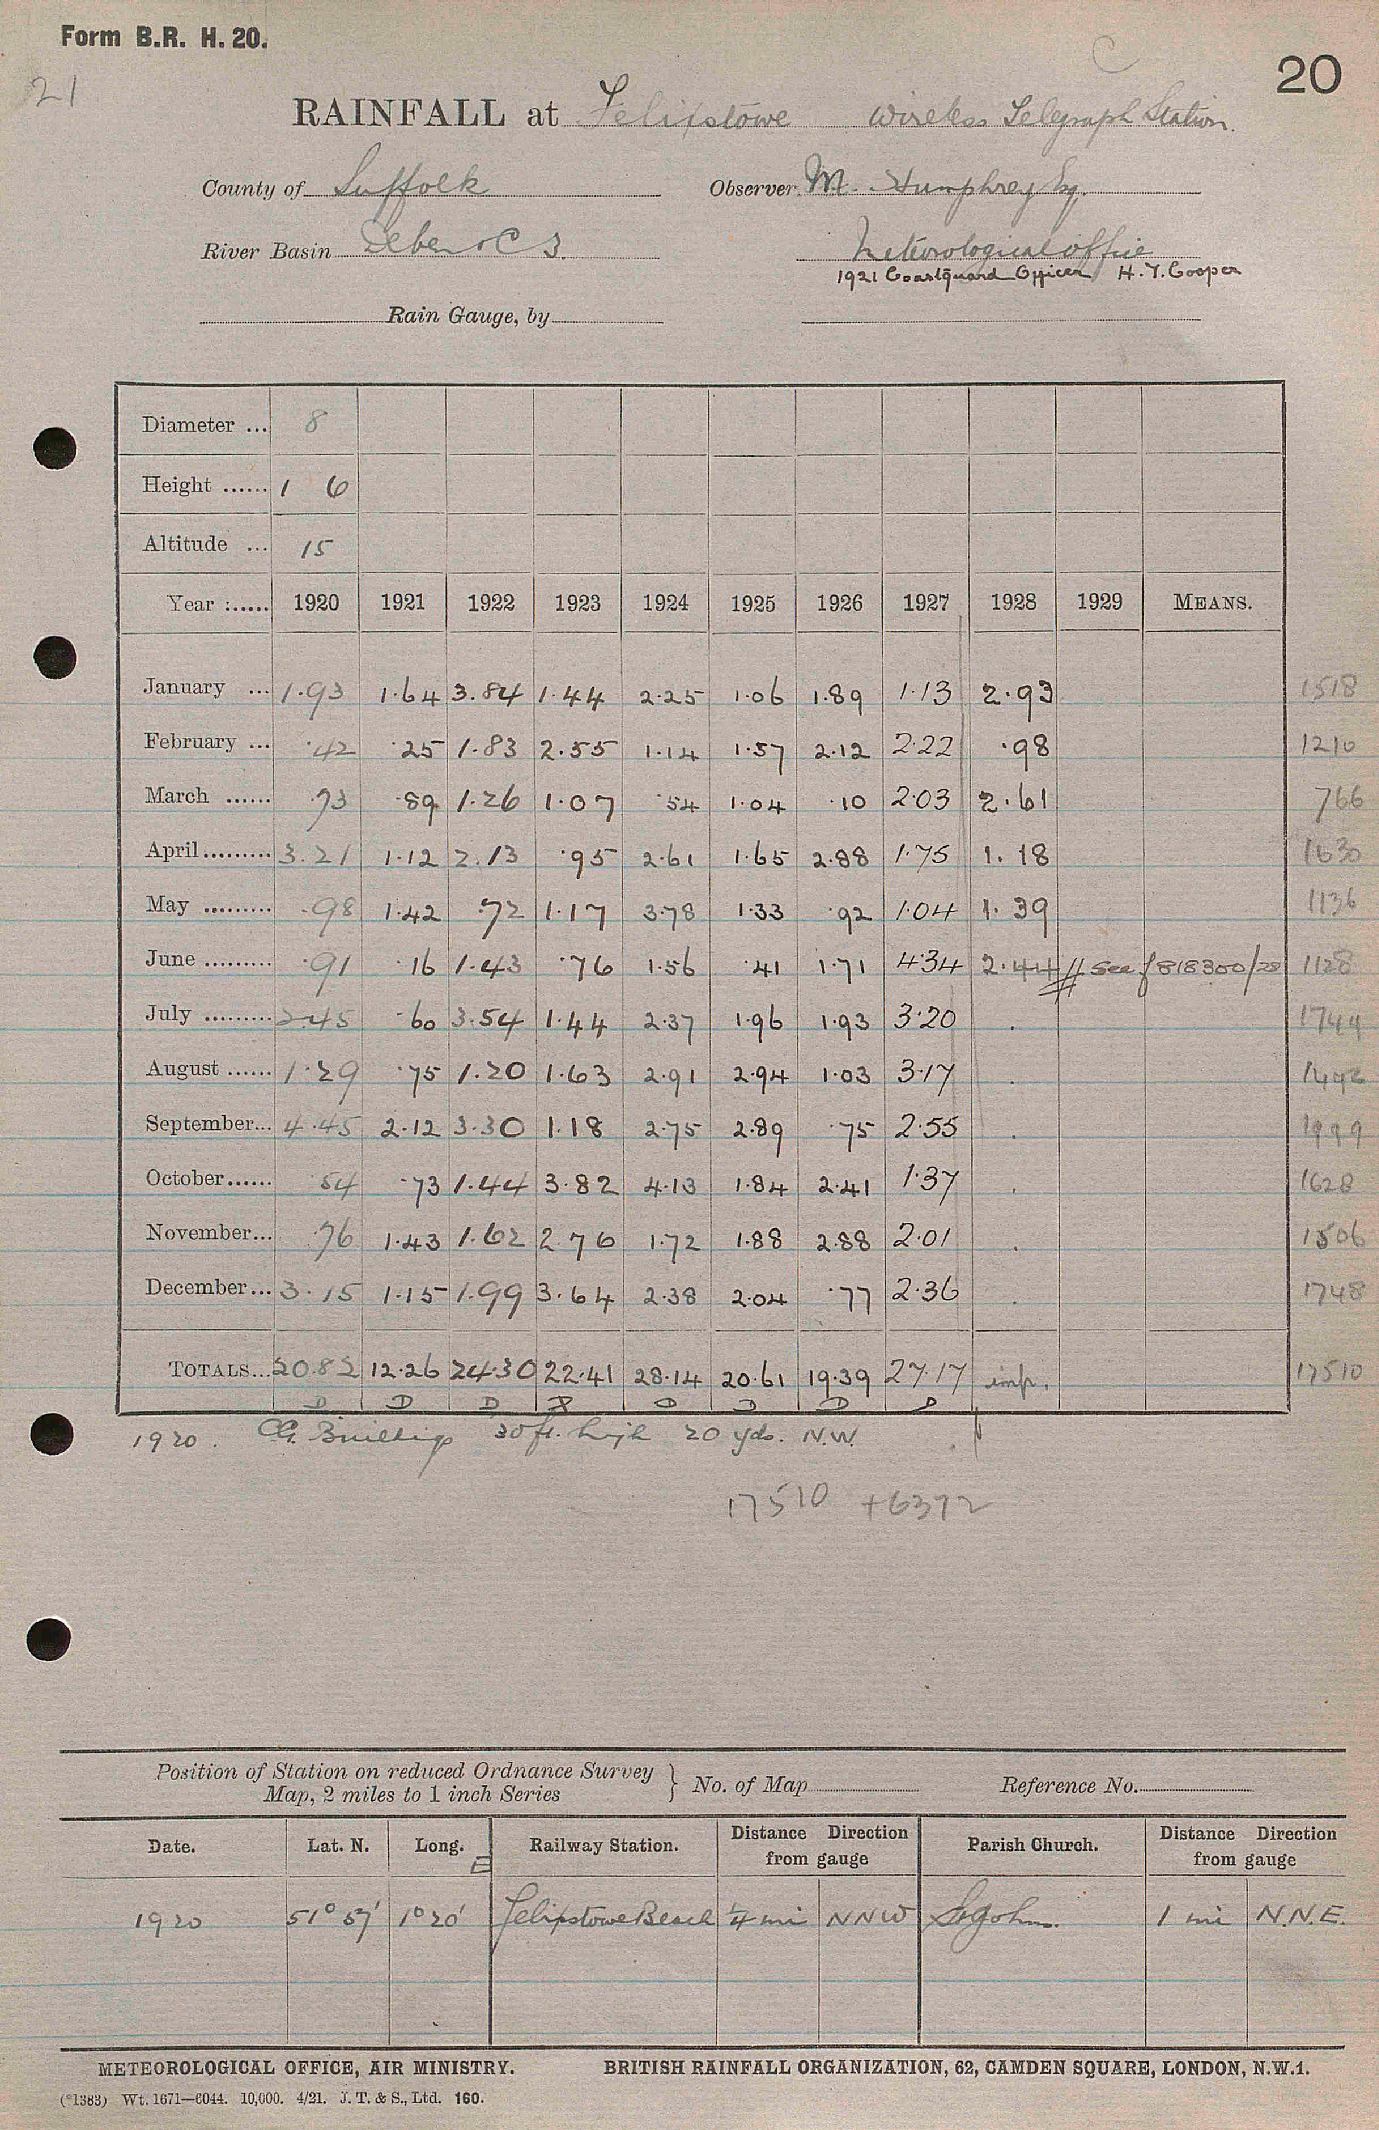 Form B.R. H. 20.
C
20
21
RAINFALL at Felixstowe Wireless Telegraph Station.
County of Suffolk Observer. M. Humphrey Esq.
River Basin Deben & C 3. Meteorological office
1921 Coastguard Officer H. T. Cooper
Rain Gauge, by
Diameter ... 8
Height ...... 1 6
Altitude ... 15
Year :..... 1920 1921 1922 1923 1924 1925 1926 1927 1928 1929 MEANS.
January ... 1.93 1.64 3.84 1.44 2.25 1.06 1.89 1.13 2.93 1518
February ... .42 .25 1.83 2.55 1.14 1.57 2.12 2.22 .98 1210
March ...... .73 .89 1.26 1.07 .54 1.04 .10 2.03 2.61 766
April......... 3.21 1.12 2.13 .95 2.61 1.65 2.88 1.75 1.18 1630
May ......... .98 1.42 .72 1.17 3.78 1.33 .92 1.04 1.39 1136
June ......... .91 .16 1.43 .76 1.56 .41 1.71 4.34 2.44 // See f 818300/28 1128
July ......... 2.45 .60 3.54 1.44 2.37 1.96 1.93 3.20 . 1744
August ...... 1.29 .75 1.20 1.63 2.91 2.94 1.03 3.17 . 1492
September... 4.45 2.12 3.30 1.18 2.75 2.89 .75 2.55 . 1999
October...... .54 .73 1.44 3.82 4.13 1.84 2.41 1.37 . 1628
November... .76 1.43 1.62 2.76 1.72 1.88 2.88 2.01 . 1506
December... 3.15 1.15 1.99 3.64 2.38 2.04 .77 2.36 . 1748
TOTALS... 20.82 12.26 24.30 22.41 28.14 20.61 19.39 27.17 imp. 17510
D D D D D D D
1920. CG. Buildings 30 ft. high 20 yds. N.W.
17510 +6372
Position of Station on reduced Ordnance Survey
Map, 2 miles to 1 inch Series } No. of Map Reference No.
Date. Lat. N. Long. E Railway Station. Distance Direction from gauge Parish Church. Distance Direction from gauge
1920 51° 57' 1° 20' Felixstowe Beach ¼ mi NNW St John. 1 mi N.N.E.
METEOROLOGICAL OFFICE, AIR MINISTRY. BRITISH RAINFALL ORGANIZATION, 62, CAMDEN SQUARE, LONDON, N.W.1.
(*1383) Wt. 1671—6044. 10,000. 4/21. J. T. & S., Ltd. 160.